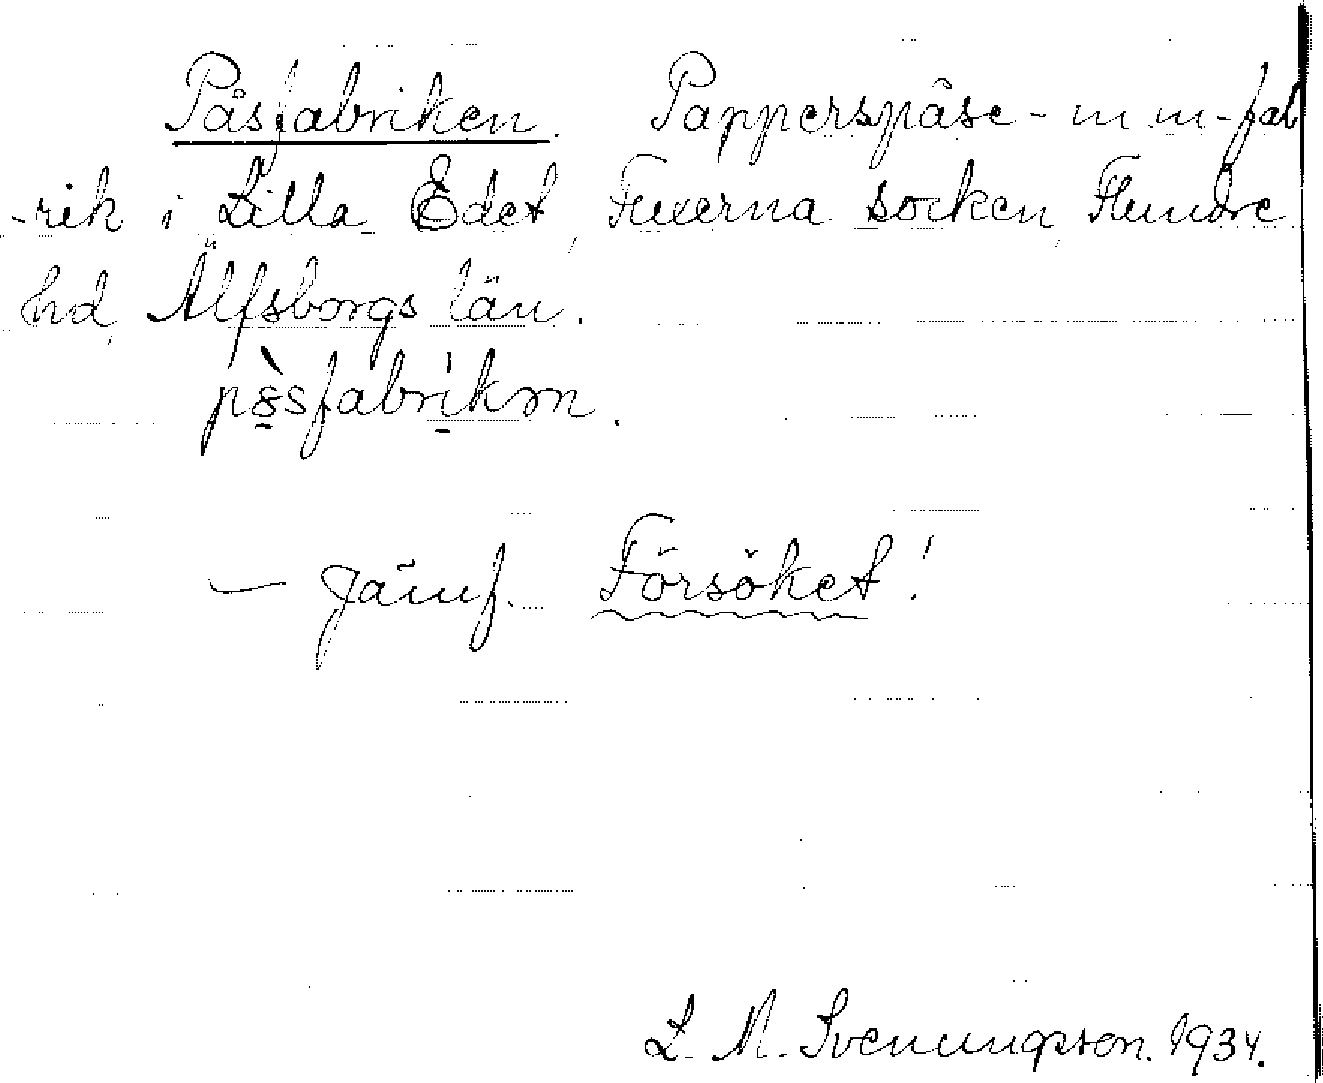 Påsfabriken. Papperspåse- m.m-fab
-rik i Lilla Edet, Fuxerna socken, Flundre
hd, Älfsborgs län.
pàsfabrikɷn.
— Jämf. Försöket!
L. M. Svenungsson. 1934.